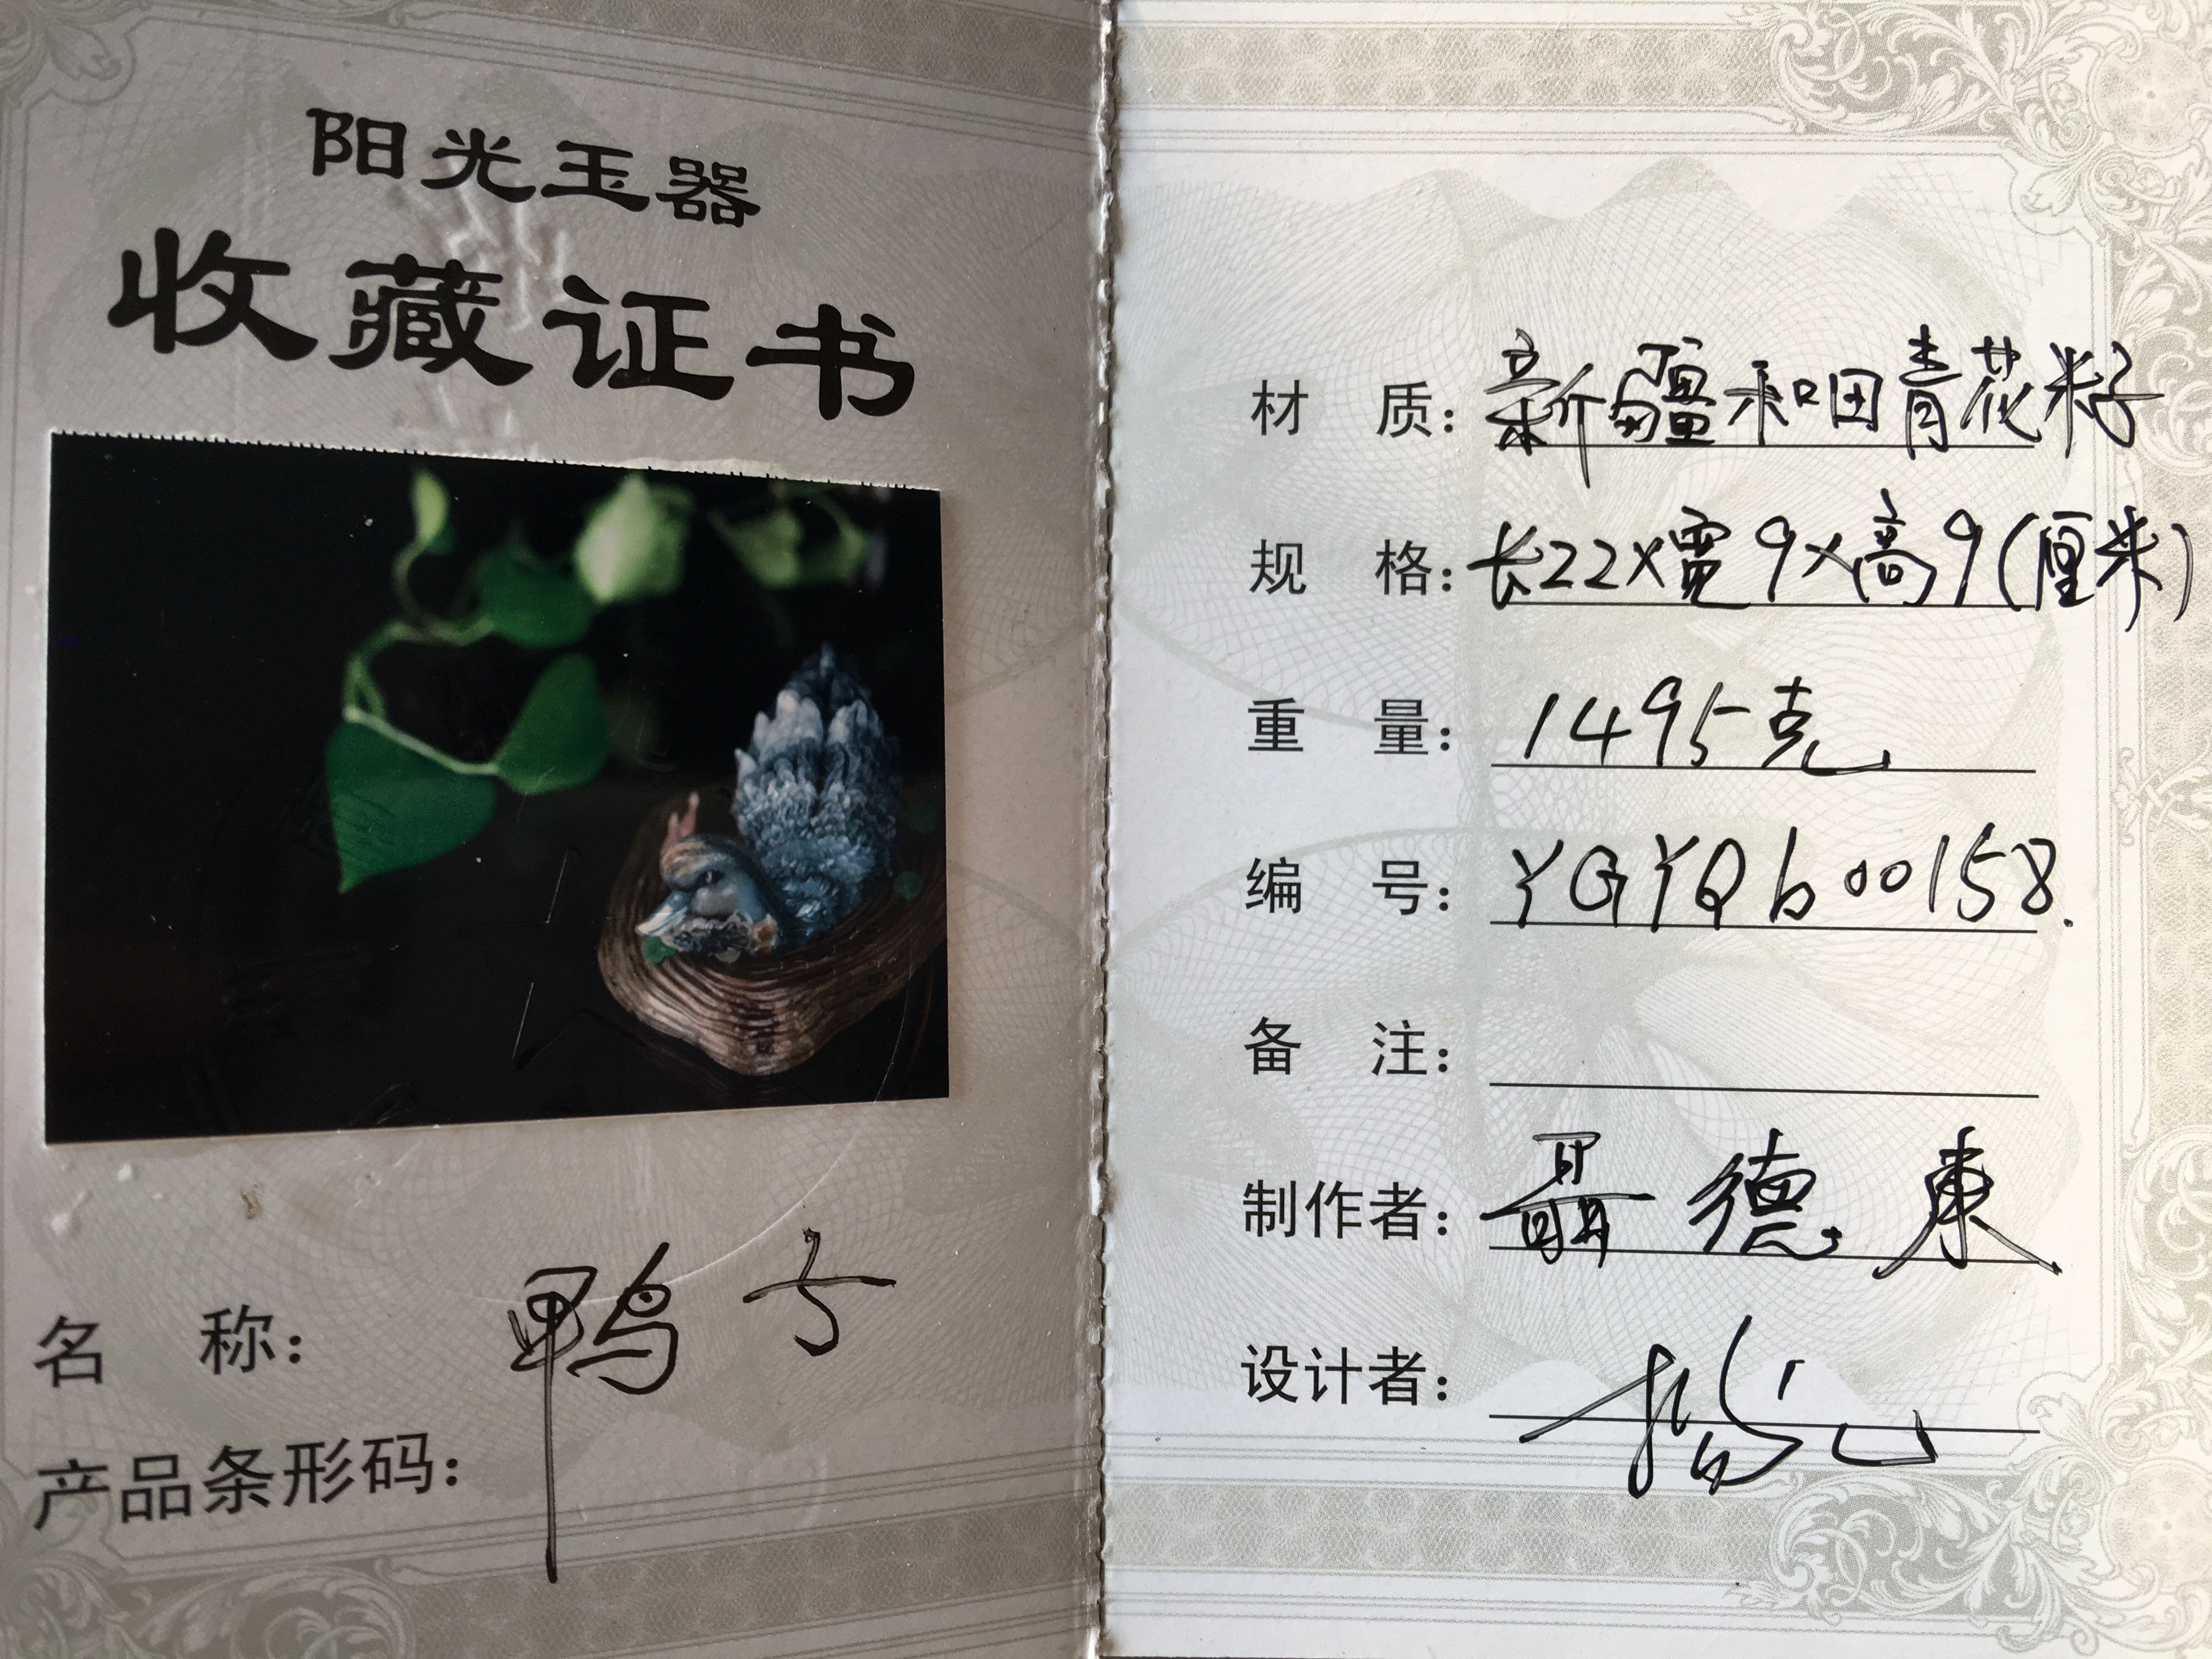 阳光玉器
收藏证书
名 称： 鸭子
产品条形码：
材 质：新疆和田青花籽
规 格：长22x宽9x高9(厘米)
重 量：1495克
编 号：YGYQb00158.
备 注：
制作者：聶德東
设计者：